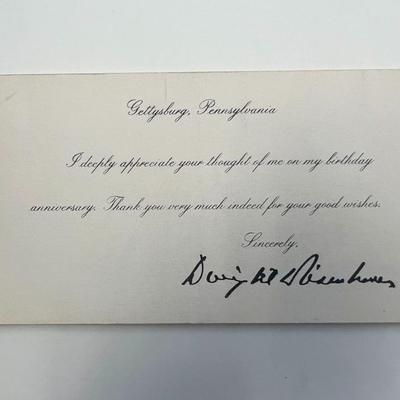 Gettysburg, Pennsylvania
I deeply appreciate your thought of me on my birthday
anniversary. Thank you very much indeed for your good wishes.
Sincerely,
Dwight D Eisenhower